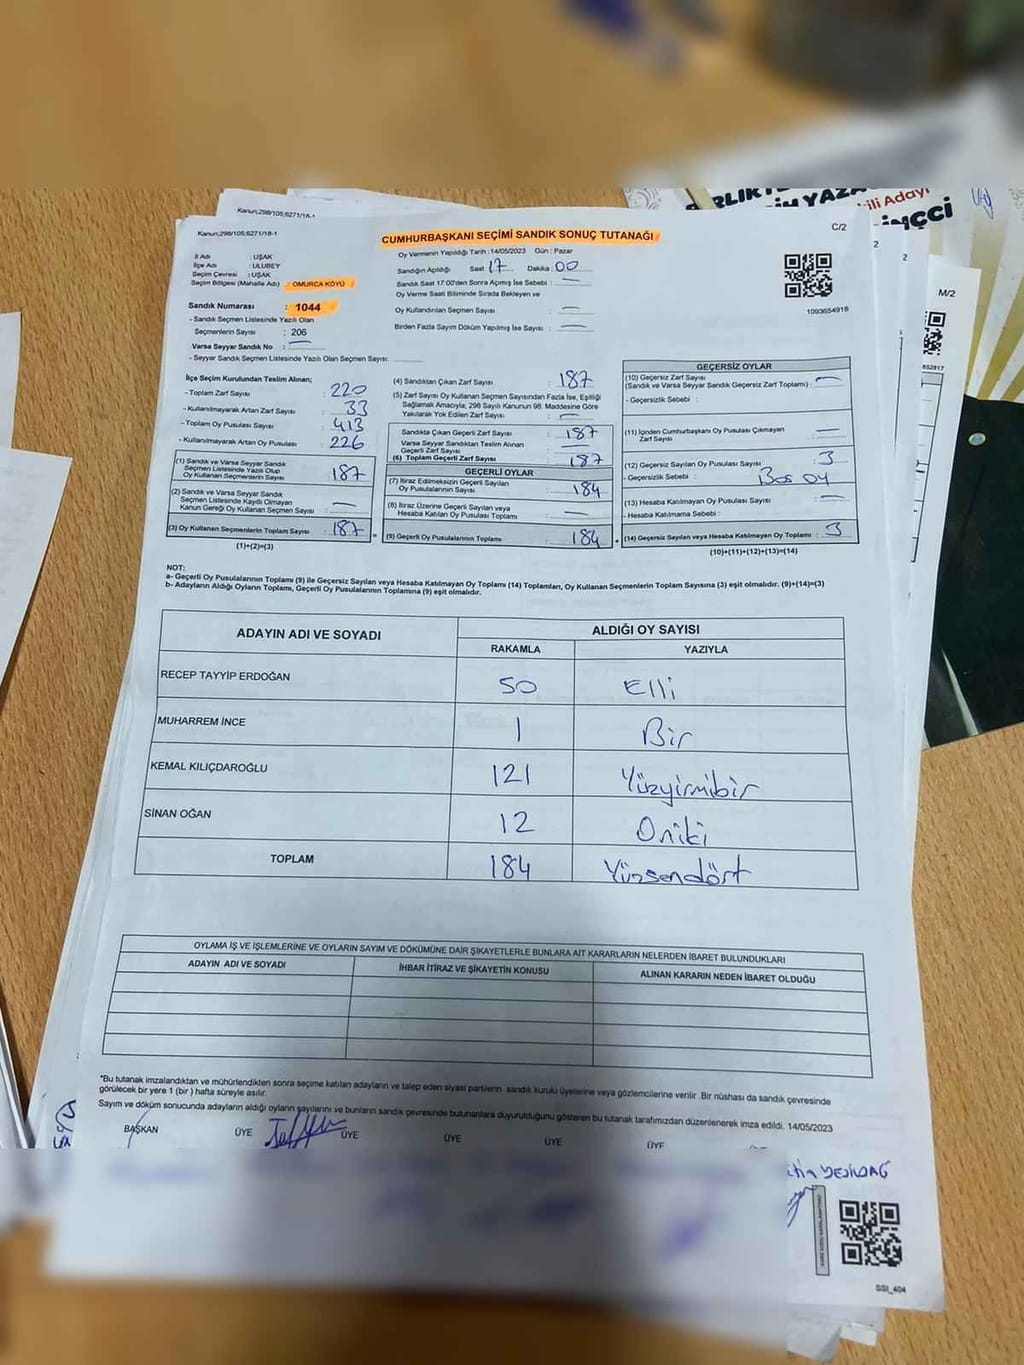 Kanun;298/105;6271/18-1
Kanun;298/105;6271/18-1
C/2
CUMHURBAŞKANI SEÇİMİ SANDIK SONUÇ TUTANAĞI
İl Adı : UŞAK
İlçe Adı : ULUBEY
Seçim Çevresi : UŞAK
Seçim Bölgesi (Mahalle Adı) : OMURCA KÖYÜ
Sandık Numarası : 1044
- Sandık Seçmen Listesinde Yazılı Olan
Seçmenlerin Sayısı : 206
Varsa Seyyar Sandık No :
- Seyyar Sandık Seçmen Listesinde Yazılı Olan Seçmen Sayısı:
Oy Vermenin Yapıldığı Tarih : 14/05/2023 Gün : Pazar
Sandığın Açıldığı Saat : 17 Dakika : 00
Sandık Saat 17:00'den Sonra Açılmış İse Sebebi :
Oy Verme Saati Bitiminde Sırada Bekleyen ve
Oy Kullandırılan Seçmen Sayısı :
Birden Fazla Sayım Döküm Yapılmış İse Sayısı :
1093654918
İlçe Seçim Kurulundan Teslim Alınan;
- Toplam Zarf Sayısı : 220
- Kullanılmayarak Artan Zarf Sayısı : 33
- Toplam Oy Pusulası Sayısı : 413
- Kullanılmayarak Artan Oy Pusulası : 226
(1) Sandık ve Varsa Seyyar Sandık
Seçmen Listesinde Yazılı Olup
Oy Kullanan Seçmenlerin Sayısı : 187
(2) Sandık ve Varsa Seyyar Sandık
Seçmen Listesinde Kayıtlı Olmayan
Kanun Gereği Oy Kullanan Seçmen Sayısı :
(3) Oy Kullanan Seçmenlerin Toplam Sayısı : 187
(1)+(2)=(3)
(4) Sandıktan Çıkan Zarf Sayısı : 187
(5) Zarf Sayısı Oy Kullanan Seçmen Sayısından Fazla İse, Eşitliği
Sağlamak Amacıyla, 298 Sayılı Kanunun 98. Maddesine Göre
Yakılarak Yok Edilen Zarf Sayısı :
Sandıkta Çıkan Geçerli Zarf Sayısı : 187
Varsa Seyyar Sandıktan Teslim Alınan
Geçerli Zarf Sayısı :
(6) Toplam Geçerli Zarf Sayısı : 187
GEÇERLİ OYLAR
(7) İtiraz Edilmeksizin Geçerli Sayılan
Oy Pusulalarının Sayısı : 184
(8) İtiraz Üzerine Geçerli Sayılan veya
Hesaba Katılan Oy Pusulası Toplamı :
(9) Geçerli Oy Pusulalarının Toplamı : 184
GEÇERSİZ OYLAR
(10) Geçersiz Zarf Sayısı
(Sandık ve Varsa Seyyar Sandık Geçersiz Zarf Toplamı) :
- Geçersizlik Sebebi :
(11) İçinden Cumhurbaşkanı Oy Pusulası Çıkmayan
Zarf Sayısı :
(12) Geçersiz Sayılan Oy Pusulası Sayısı : 3
- Geçersizlik Sebebi : Boş oy
(13) Hesaba Katılmayan Oy Pusulası Sayısı :
- Hesaba Katılmama Sebebi :
(14) Geçersiz Sayılan veya Hesaba Katılmayan Oy Toplamı : 3
(10)+(11)+(12)+(13)=(14)
NOT:
a- Geçerli Oy Pusulalarının Toplamı (9) ile Geçersiz Sayılan veya Hesaba Katılmayan Oy Toplamı (14) Toplamları, Oy Kullanan Seçmenlerin Toplam Sayısına (3) eşit olmalıdır. (9)+(14)=(3)
b- Adayların Aldığı Oyların Toplamı, Geçerli Oy Pusulalarının Toplamına (9) eşit olmalıdır.
ADAYIN ADI VE SOYADI ALDIĞI OY SAYISI
RAKAMLA YAZIYLA
RECEP TAYYİP ERDOĞAN 50 Elli
MUHARREM İNCE 1 Bir
KEMAL KILIÇDAROĞLU 121 Yüzyirmibir
SİNAN OĞAN 12 Oniki
TOPLAM 184 Yüzsendört
OYLAMA İŞ VE İŞLEMLERİNE VE OYLARIN SAYIM VE DÖKÜMÜNE DAİR ŞİKAYETLERLE BUNLARA AİT KARARLARIN NELERDEN İBARET BULUNDUKLARI
ADAYIN ADI VE SOYADI İHBAR İTİRAZ VE ŞİKAYETİN KONUSU ALINAN KARARIN NEDEN İBARET OLDUĞU
*Bu tutanak imzalandıktan ve mühürlendikten sonra seçime katılan adayların ve talep eden siyasi partilerin sandık kurulu üyelerine veya gözlemcilerine verilir .Bir nüshası da sandık çevresinde
görülecek bir yere 1 (bir ) hafta süreyle asılır.
Sayım ve döküm sonucunda adayların aldığı oyların sayılarını ve bunların sandık çevresinde bulunanlara duyurulduğunu gösteren bu tutanak tarafımızdan düzenlenerek imza edildi. 14/05/2023
BAŞKAN ÜYE ÜYE ÜYE ÜYE ÜYE
YEŞİLDAĞ
SSI_404
M/2
652817
2
2